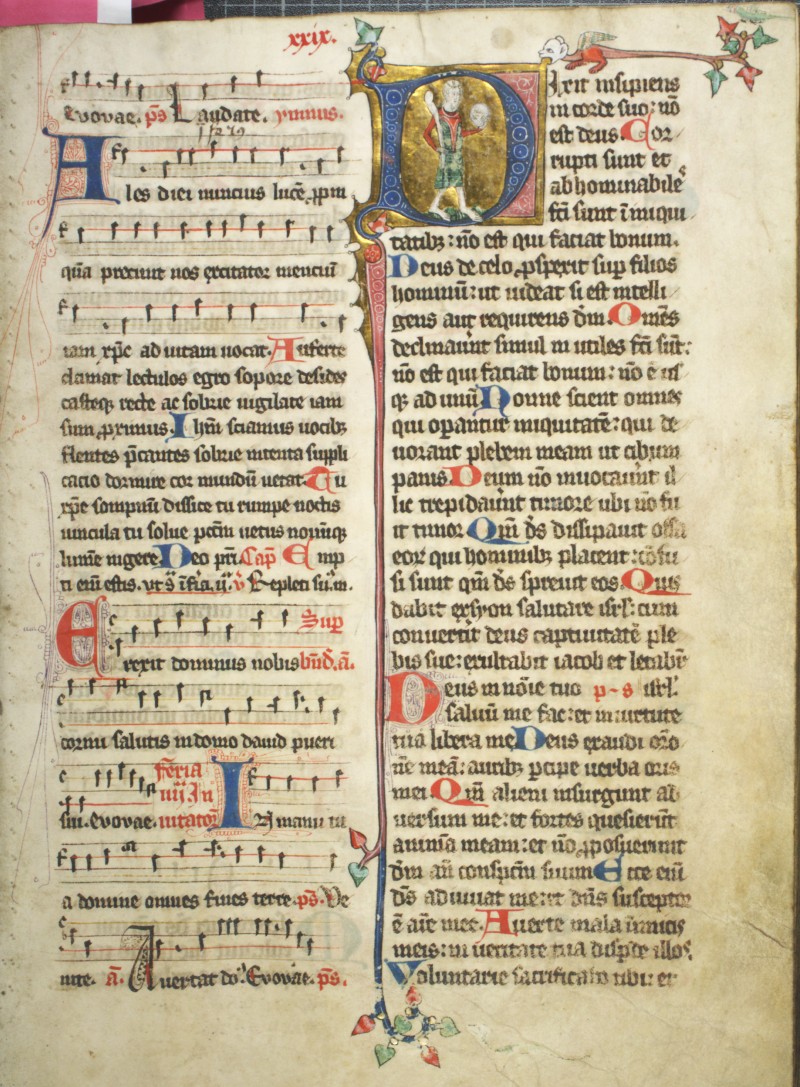 xxix.
Evovae. ps Laudate. ymnus.
Ales diei nuncius lucē ꝓpin
qūa precinit nos excitator mencium
iam xp̄c ad uitam uocat. Auferte
clamat lectulos egro sopore desides
casteqꝫ recte ac sobrie uigilate iam
sum ꝓximus. Ihm̄ sciamus uocibꝫ
flentes p̄cantes sobrie intenta suppli
cacio dormire cor mundū uetat. Tu
xp̄e sompnū dissice tu rumpe noctis
uincula tu solue pctm̄ uetus nouūqꝫ
lumē ingere Deo pr̄i. Cap̄ Emp
ti enī estis. vt s̄ ī fia. ii. v̄ Repleti su. m.
Sup
Erexit dominus nobis bn̄d. a.
cornu salutis in domo dauid pueri
feria
iiij. In
sui. Evovae. uitator In manu tu
a domine omnes fines terre. ps Ve
nite. a. Auertat do. Evovae. ps.
Dixit insipiens
in corde suo: nō
est deus Cor
rupti sunt et
abhominabile
fc̄i sunt ī iniqui
tatibꝫ: nō est qui faciat bonum.
Deus de celo ꝓspexit sup filios
hominū: ut uideat si est intelli
gens aut requirens dm̄. Omēs
declinauunt simul in utiles fc̄i sūt:
nō est qui faciat bonum: nō ē us
qꝫ ad unū Nonne scient omnes
qui operantur iniquitatē: qui de
uorant plebem meam ut cibum
panis. Deum nō inuocauūt il
lic trepidauūt timore ubi nō fu
it timor Qm̄ ds̄ dissipauit ossa
eor qui hominibꝫ placent: cōfu
si sunt qm̄ ds̄ spreuit eos Quis
dabit ex syon salutare isrl: cum
conuertit deus captiuitatē ple
bis sue: exultabit iacob et letabit
Deus in noīe tuo p-s isrl.
saluū me fac: et in uirtute
tua libera me Deus exaudi orō
nē meā: auribꝫ ꝑcipe uerba oris
mei Qm̄ alieni insurgunt ad
uersum me: et fortes quesierūt
animā meam: et nō ꝓposuerunt
dm̄ an̄ conspc̄m suum Ecce enī
ds̄ adiuuat me: et dn̄s susceptor
ē aīe mee. Auerte mala inimicis
meis: in ueritate tua dispde illos.
Voluntarie sacrificabo tibi: et